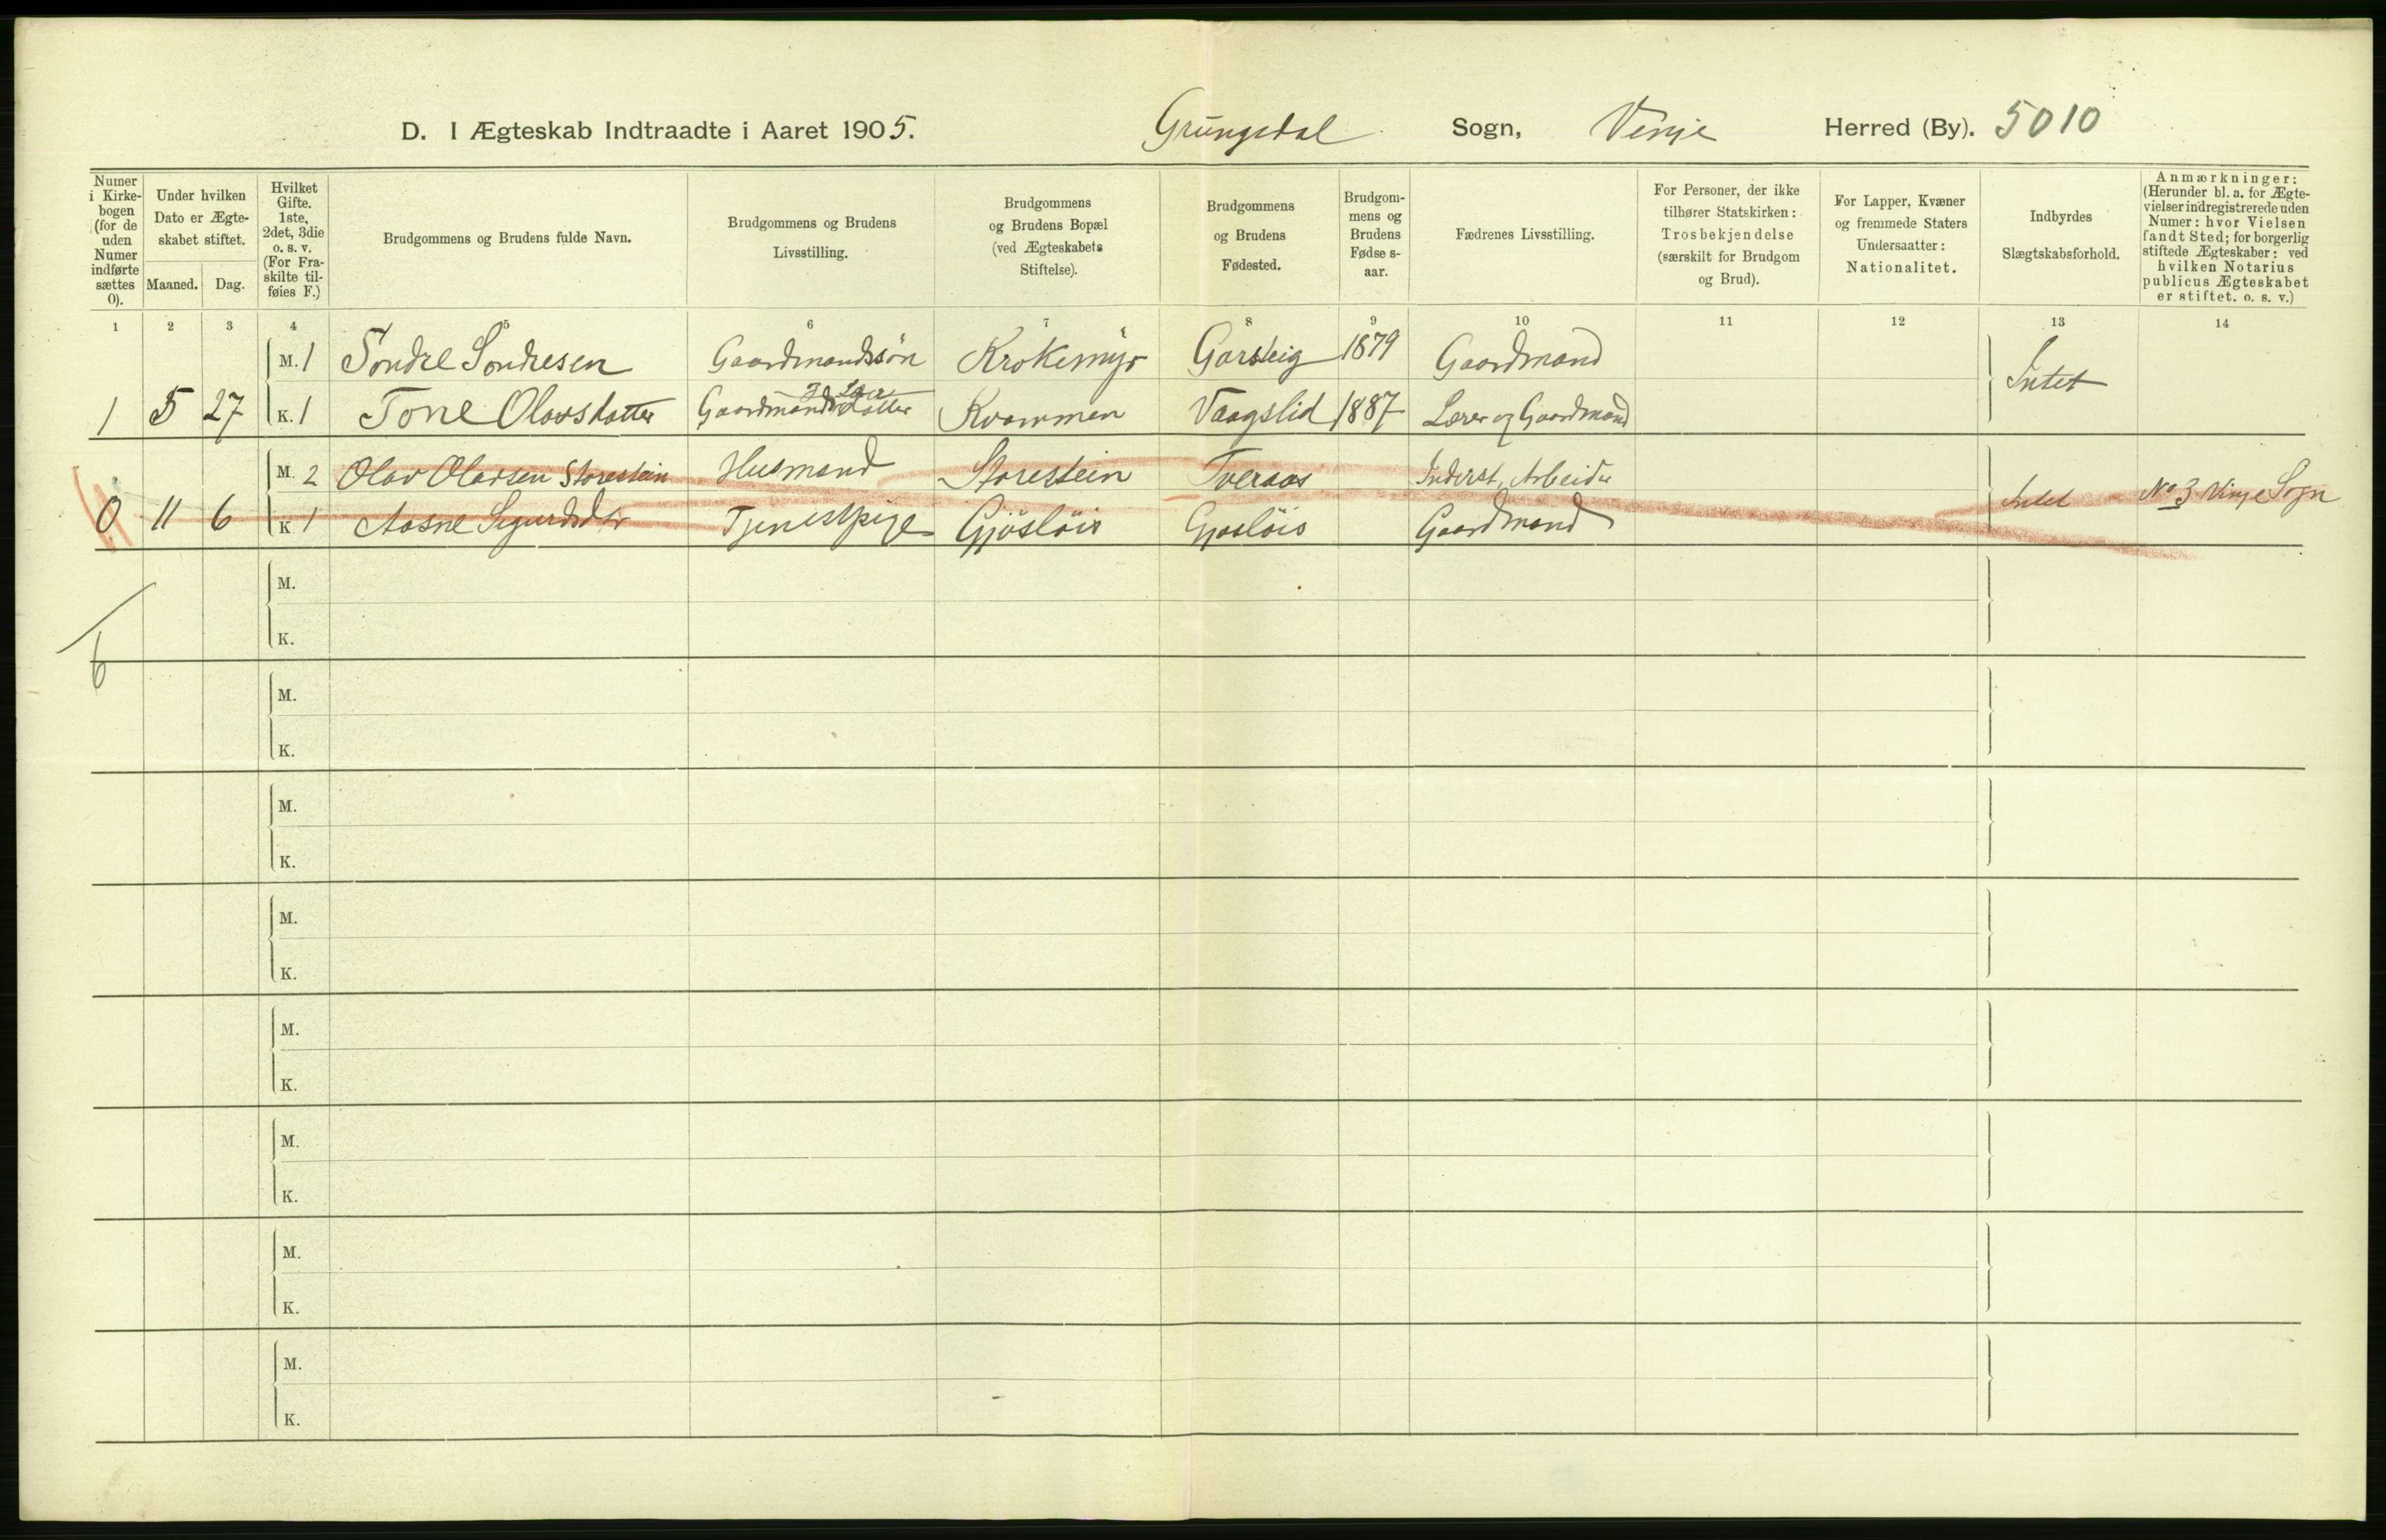 D. I Ægteskab Indtraadte i Aaret 1905. Grungedal Sogn, Vinje Herred (By). 5010
Numer i Kirkebogen (for de uden Numer indførte sættes 0).
Under hvilken Dato er Ægteskabet stiftet.
Maaned. Dag.
Hvilket Gifte. 1ste, 2det, 3die o. s. v. (For Fraskilte tilføies F.)
Brudgommens og Brudens fulde Navn.
Brudgommens og Brudens Livsstilling.
Brudgommens og Brudens Bopæl (ved Ægteskabets Stiftelse).
Brudgommens og Brudens Fødested.
Brudgommens og Brudens Fødselsaar.
Fædrenes Livsstilling.
For Personer, der ikke tilhører Statskirken: Trosbekjendelse (særskilt for Brudgom og Brud).
For Lapper, Kvæner og fremmede Staters Undersaatter: Nationalitet.
Indbyrdes Slægtskabsforhold.
Anmærkninger: (Herunder bl. a. for Ægtevielser indregistrerede uden Numer: hvor Vielsen fandt Sted; for borgerlig stiftede Ægteskaber: ved hvilken Notarius publicus Ægteskabet er stiftet. o. s. v.)
1 2 3 4 5 6 7 8 9 10 11 12 13 14
M. 1 Sondre Sondresen Gaardmandssøn Krokemyr Garsteig 1879 Gaardmand Intet
1 5 27 K. 1 Tone Olavsdatter Gaardmandsdatter Kvammen Vaagslid 1887 Lærer og Gaardmand
M. 2 Olav Olavsen Storestein Husmand Storestein Tveraas Inderst, Arbeider
0 11 6 K 1 Aasne Sigurdsdtr Tjenestpige Gjøsløis Gjøsløis Gaardmand Intet No 3 Vinje Sogn
M.
K.
6
M.
K.
M.
K.
M.
K.
M.
K.
M.
K.
M.
K.
M.
K.